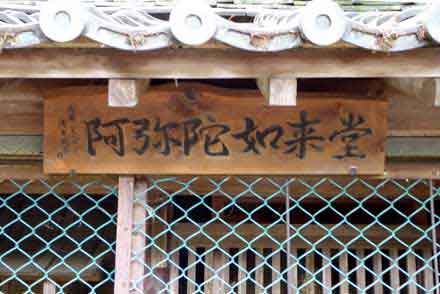 阿弥陀如来堂